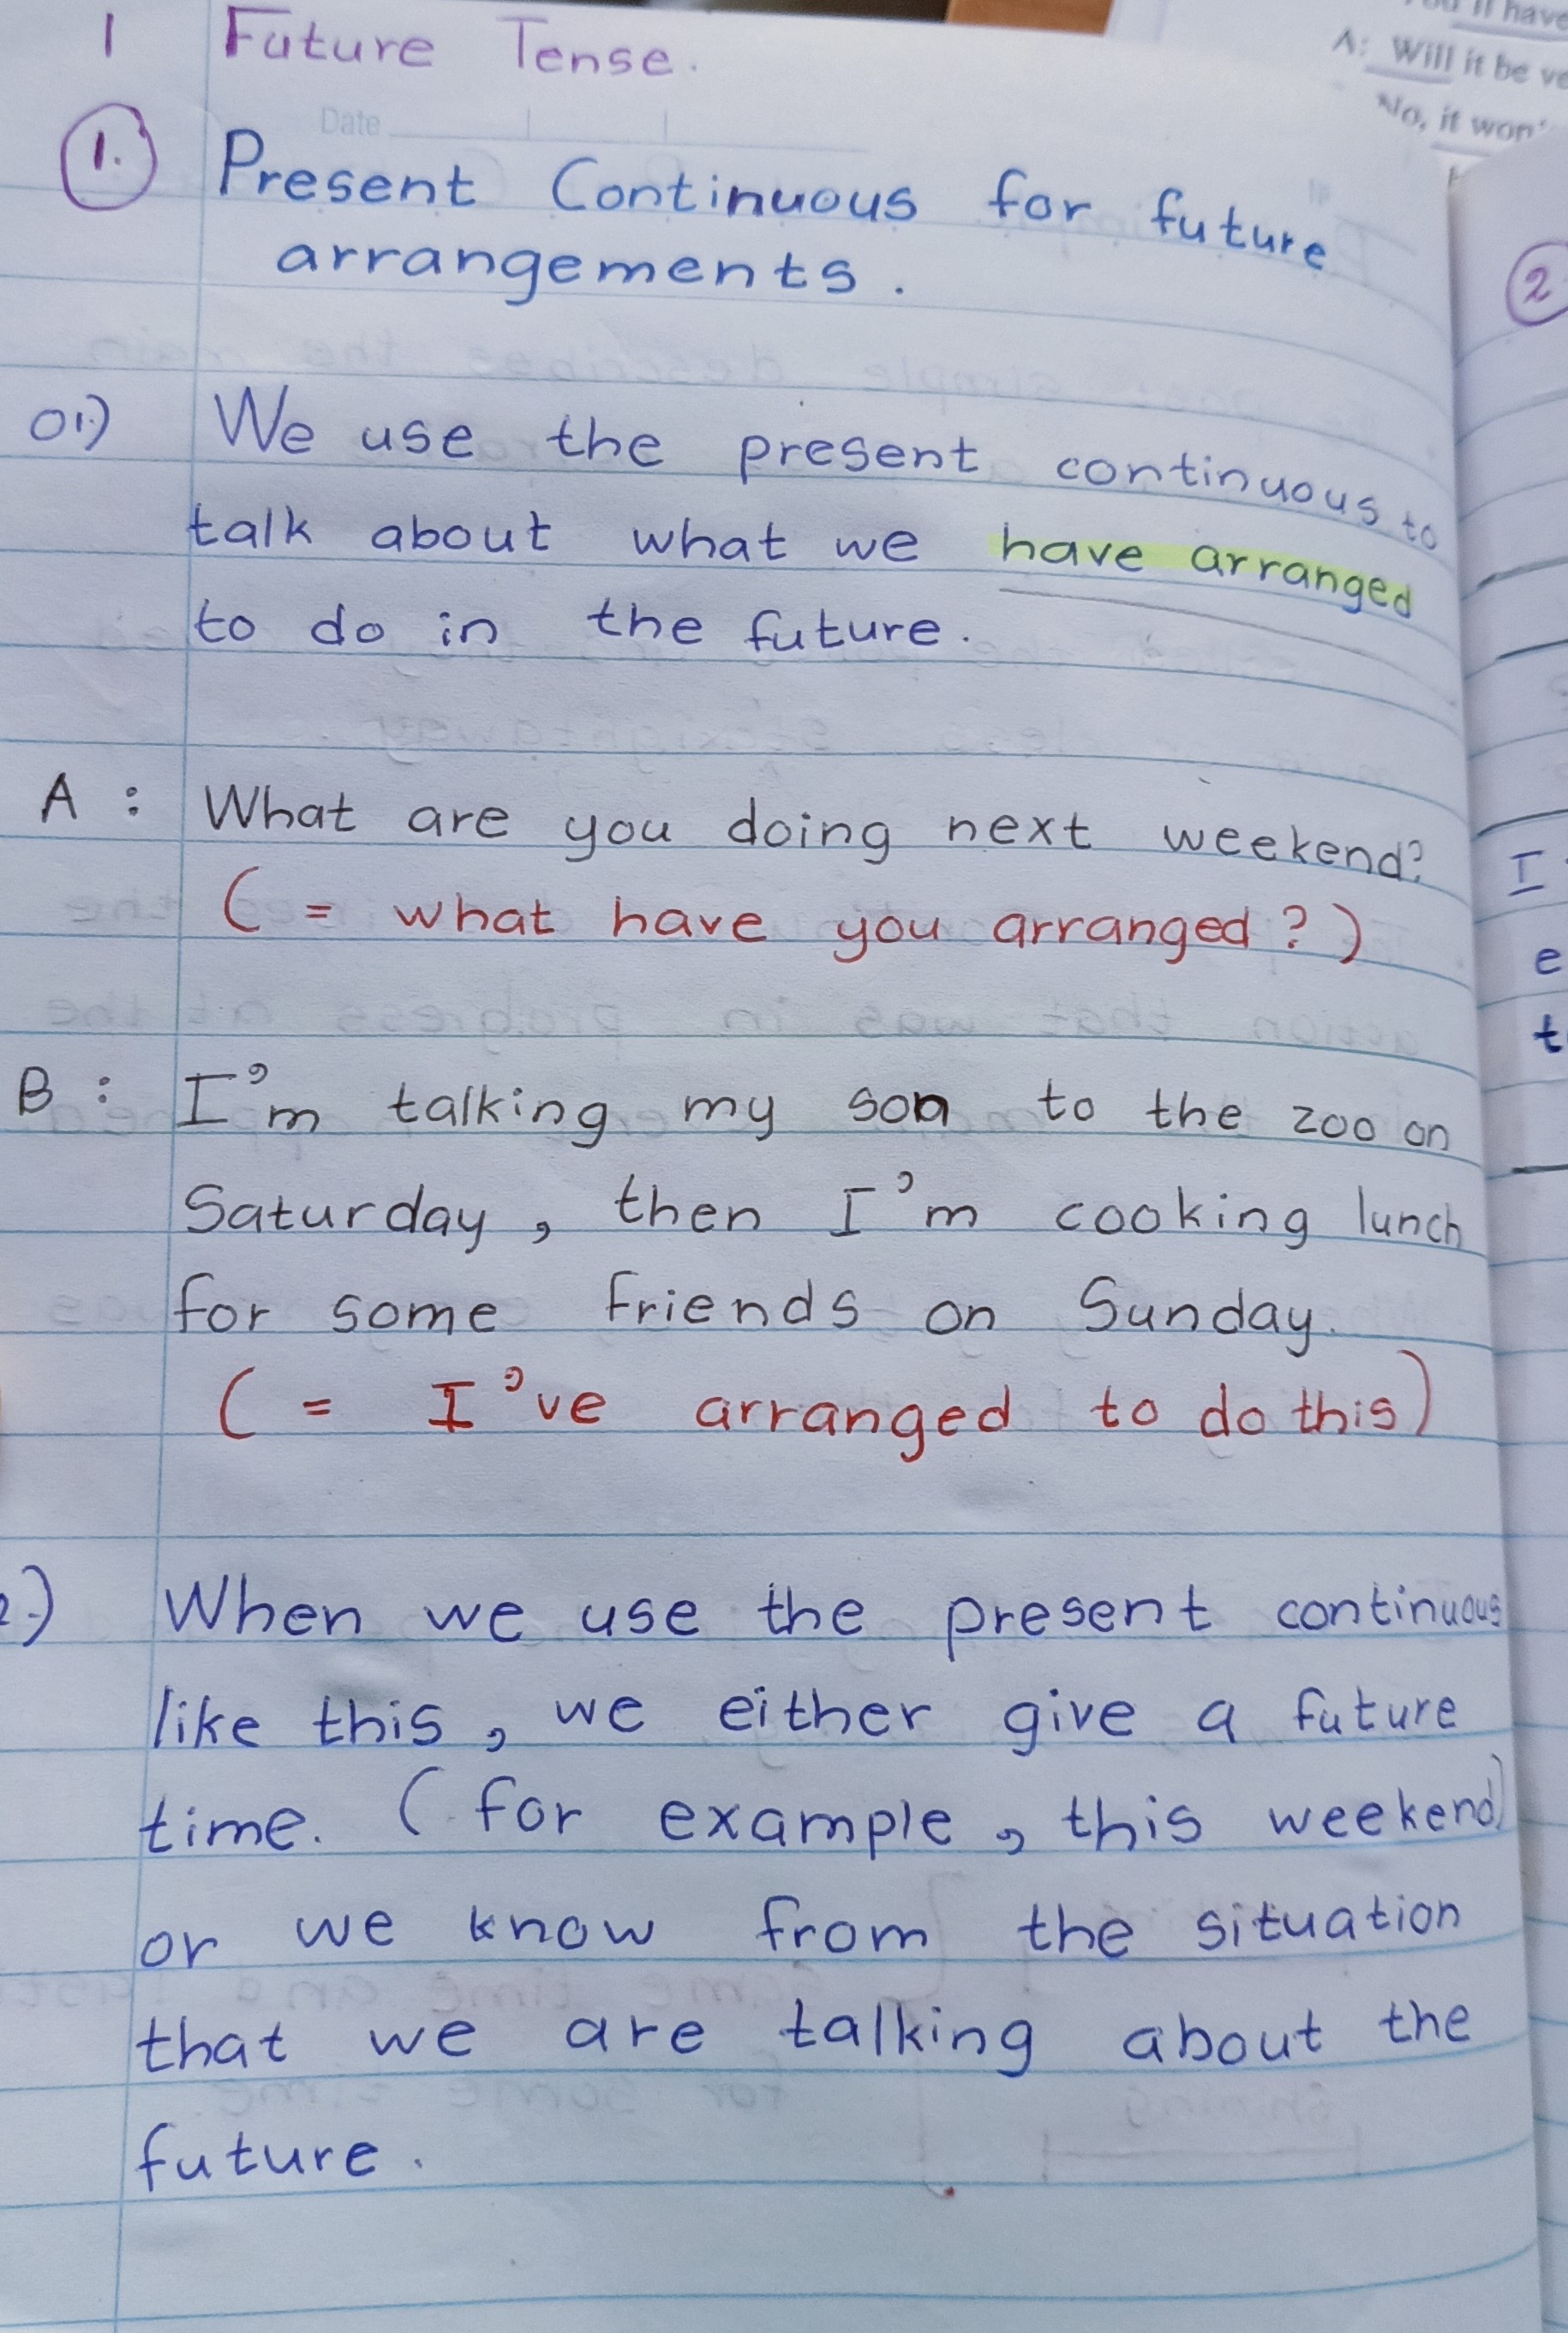 1 Future Tense.
Date
1. Present Continuous for future
arrangements.
01) We use the present continuous to
talk about what we have arranged
to do in the future.
A : What are you doing next weekend?
( = what have you arranged ? )
B : I'm talking my son to the zoo on
Saturday , then I'm cooking lunch
for some friends on Sunday.
( = I've arranged to do this)
2.) When we use the present continuous
like this , we either give a future
time. ( for example , this weekend)
or we know from the situation
that we are talking about the
future .
have
A: Will it be
No, it won'
2
I
e
t